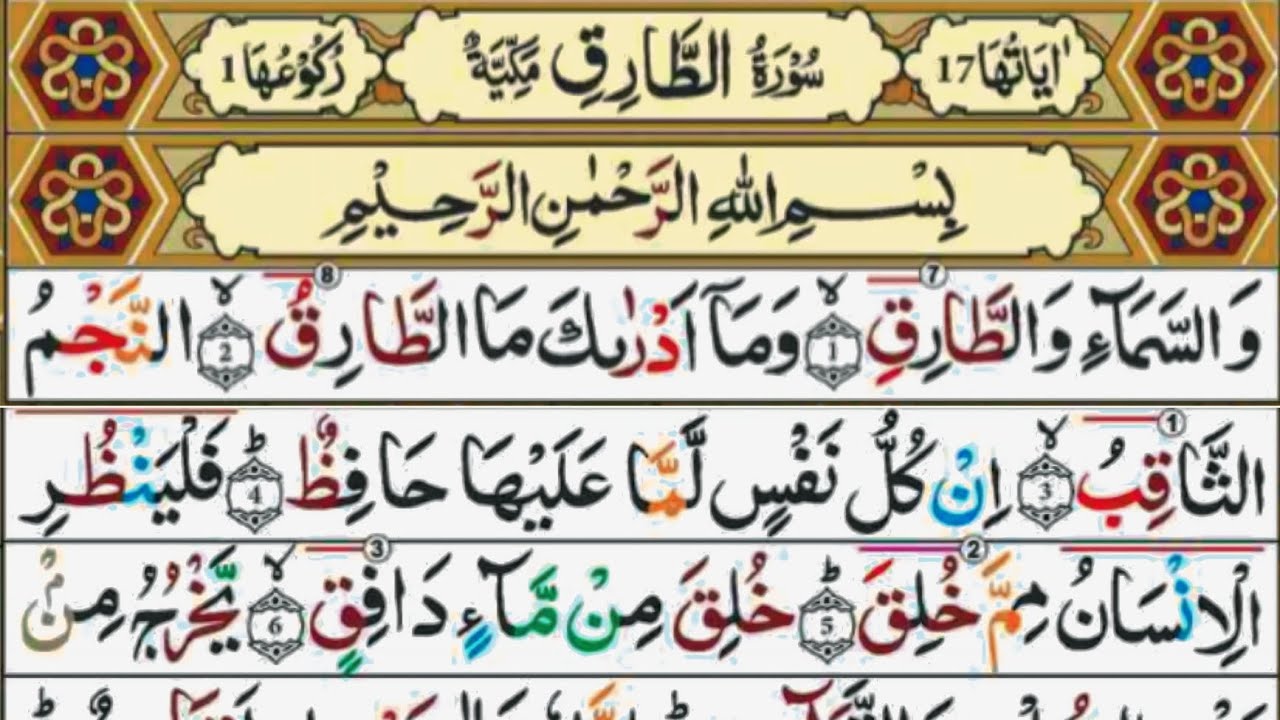 اٰيَاتُهَا 17 سُوْرَةُ الطَّارِقِ مَكِّيَّةٌ رُكُوْعُهَا 1
بِسْمِ اللهِ الرَّحْمٰنِ الرَّحِيْمِ
وَالسَّمَآءِ وَالطَّارِقِ 7 ۙ 1 وَمَآ اَدْرٰىكَ مَا الطَّارِقُ 8 ۙ 2 النَّجْمُ
الثَّاقِبُ 1 ۙ 3 اِنْ كُلُّ نَفْسٍ لَّمَّا عَلَيْهَا حَافِظٌ ؕ 4 فَلْيَنْظُرِ
الْاِنْسَانُ مِمَّ خُلِقَ 2 ؕ 5 خُلِقَ مِنْ مَّآءٍ دَافِقٍ 3 ۙ 6 يَّخْرُجُ مِنْۢ